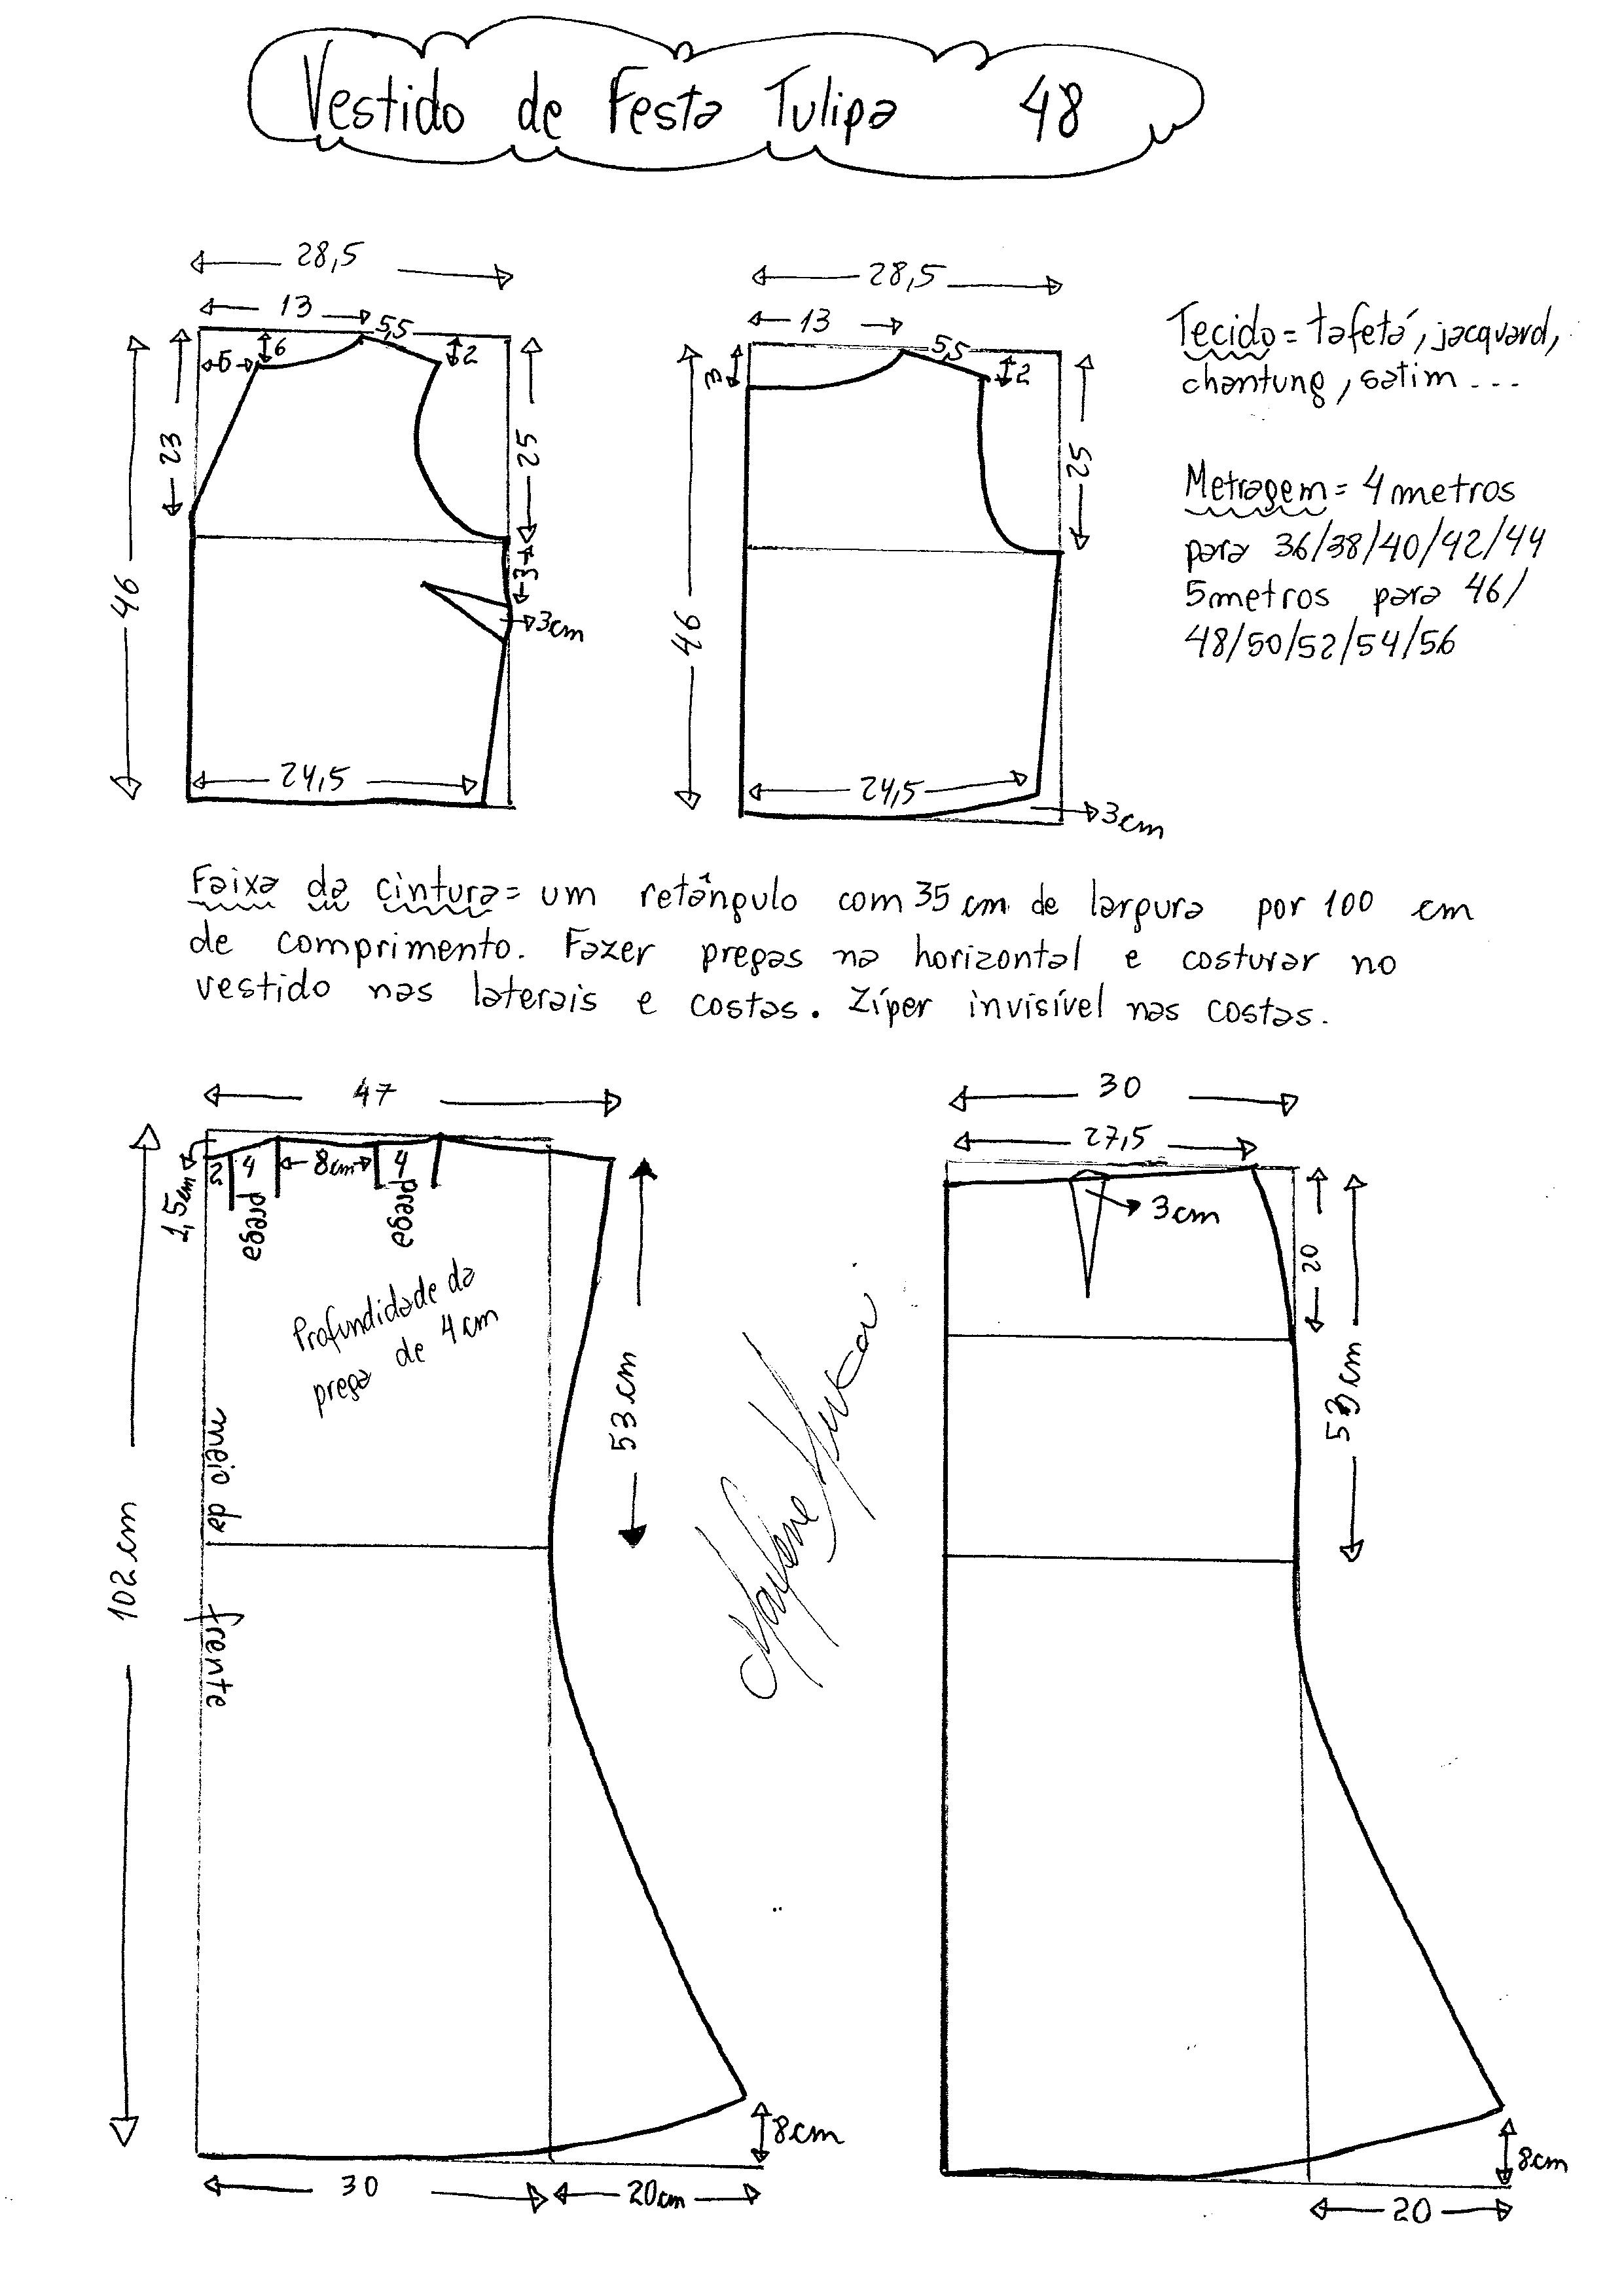 Vestido de Festa Tulipa 48
28,5
13
5,5
6
5
2
23
25
46
3
3cm
24,5
28,5
13
5,5
3
2
25
46
24,5
3cm
Tecido = tafetá, jacquard,
chantung, satim ...
Metragem = 4 metros
para 36/38/40/42/44
5 metros para 46/
48/50/52/54/56
Faixa da cintura = um retângulo com 35 cm de largura por 100 cm
de comprimento. Fazer pregas na horizontal e costurar no
vestido nas laterais e costas. Zíper invisível nas costas.
47
1,5cm
2
4
prega
8cm
4
prega
Profundidade da
prega de 4 cm
53 cm
102 cm
meio da frente
8cm
30
20cm
30
27,5
3cm
20
53cm
8cm
20